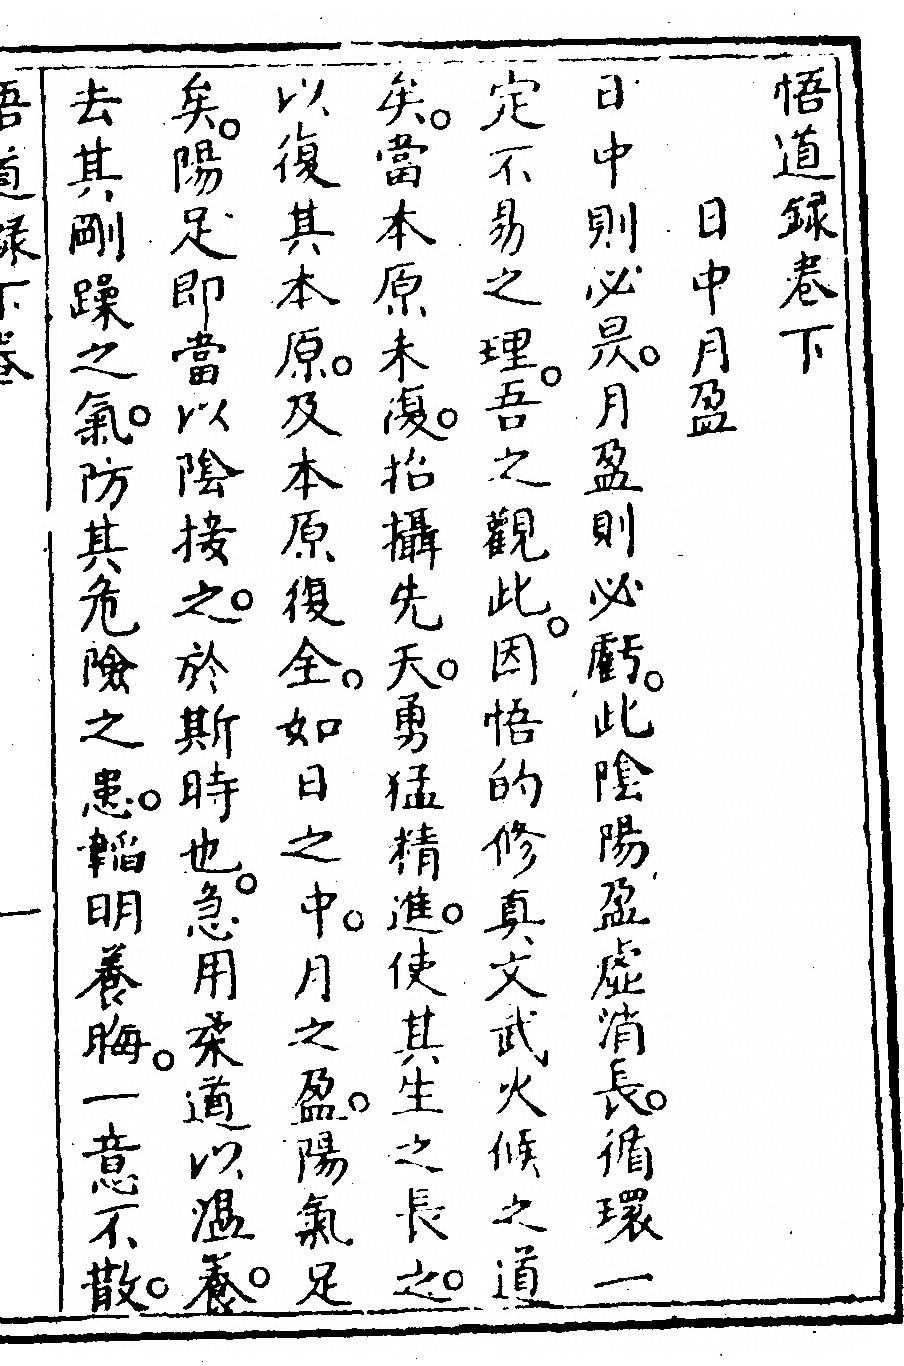 悟道録卷下
日中月盈
日中則必昃。月盈則必虧。此陰陽盈虛消長。循環一
定不易之理。吾之觀此。因悟的修真文武火候之道
矣。當本原未復。招攝先天。勇猛精進。使其生之長之。
以復其本原。及本原復全。如日之中。月之盈。陽氣足
矣。陽足即當以陰接之。於斯時也。急用柔道以溫養。
去其剛躁之氣。防其危險之患。韜明養晦。一意不散。
悟道録下卷
一